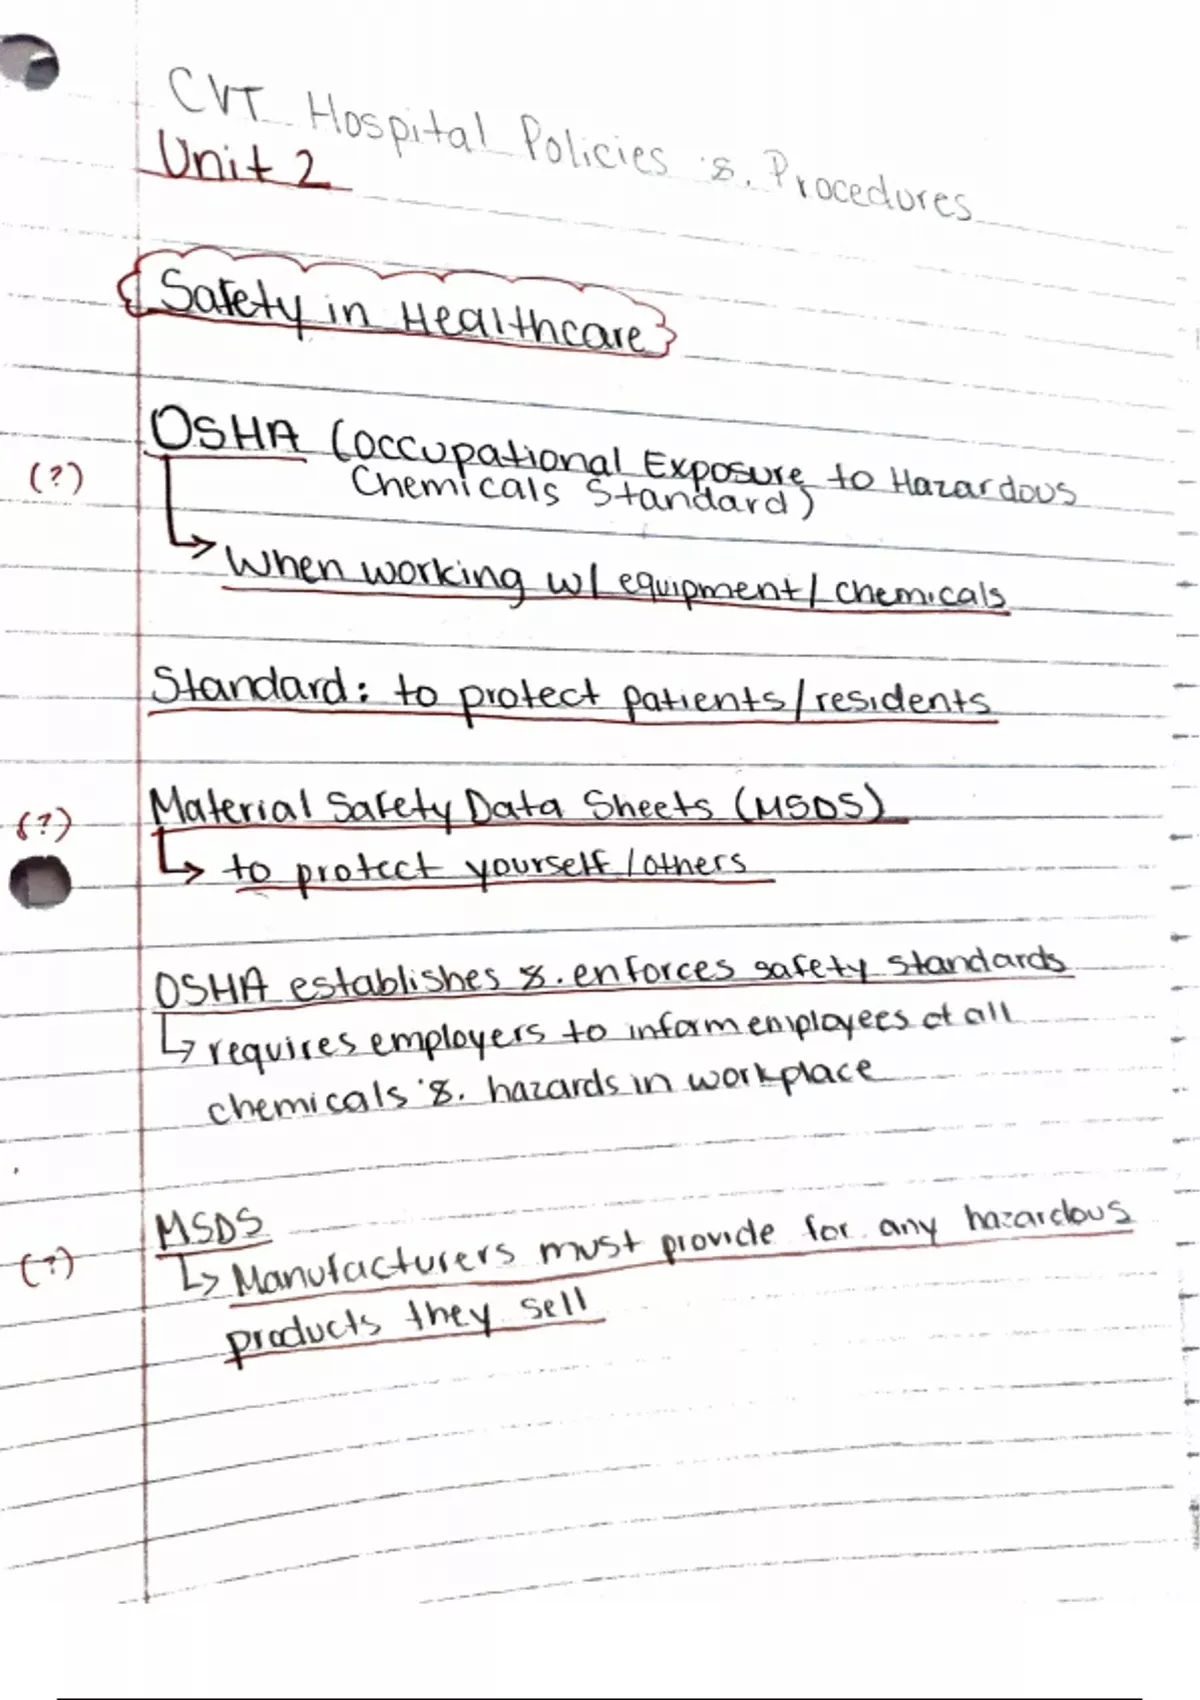 CVT Hospital Policies & Procedures
Unit 2
Safety in Healthcare
OSHA (Occupational Exposure to Hazardous
(?)
Chemicals Standard)
↳ When working w/ equipment / chemicals
Standard: to protect patients/residents
(?) Material Safety Data Sheets (MSDS)
↳ to protect yourself/others
OSHA establishes & enforces safety standards
↳ requires employers to inform employees of all
chemicals & hazards in workplace
MSDS
(?)
↳ Manufacturers must provide for any hazardous
products they sell